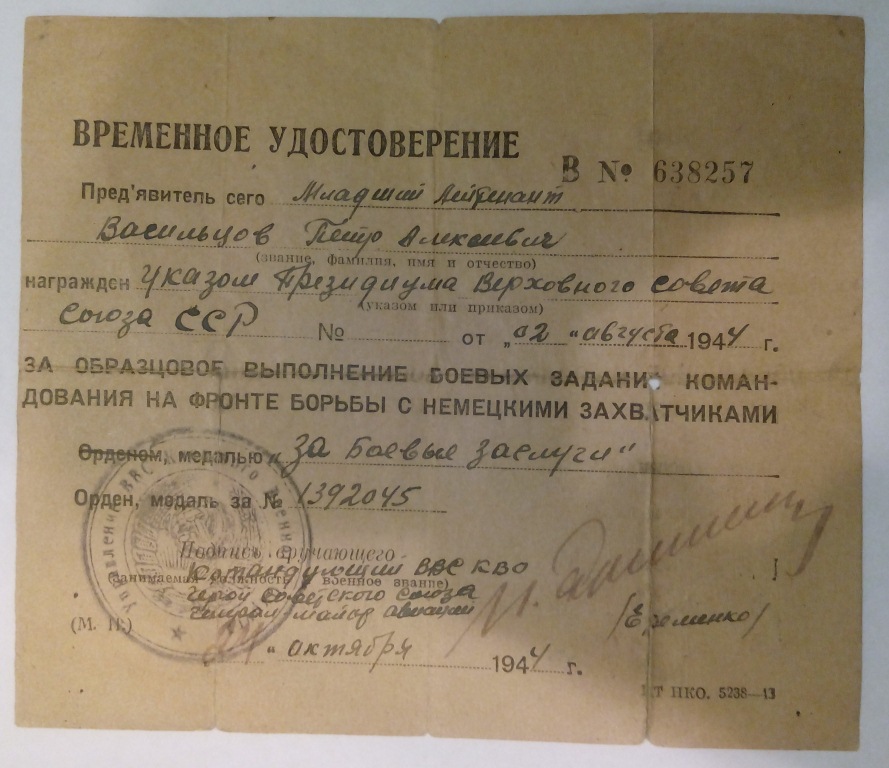 ВРЕМЕННОЕ УДОСТОВЕРЕНИЕ
В № 638257
Пред'явитель сего Младший Лейтенант
Васильцов Петр Алексеевич
(звание, фамилия, имя и отчество)
награжден Указом Президиума Верховного совета
(указом или приказом)
Союза ССР № от „02 " августа 1944 г.
ЗА ОБРАЗЦОВОЕ ВЫПОЛНЕНИЕ БОЕВЫХ ЗАДАНИЙ КОМАН-
ДОВАНИЯ НА ФРОНТЕ БОРЬБЫ С НЕМЕЦКИМИ ЗАХВАТЧИКАМИ
Орденом, медалью „За Боевые заслуги"
Орден, медаль за № 1392045
Подпись вручающего
Командующий ВВС КВО
(занимаемая должность и военное звание)
Герой Советского Союза
генерал майор авиации
/Еременко/
(М. П.)
" октября 1944 г.
НКО. 5238—43